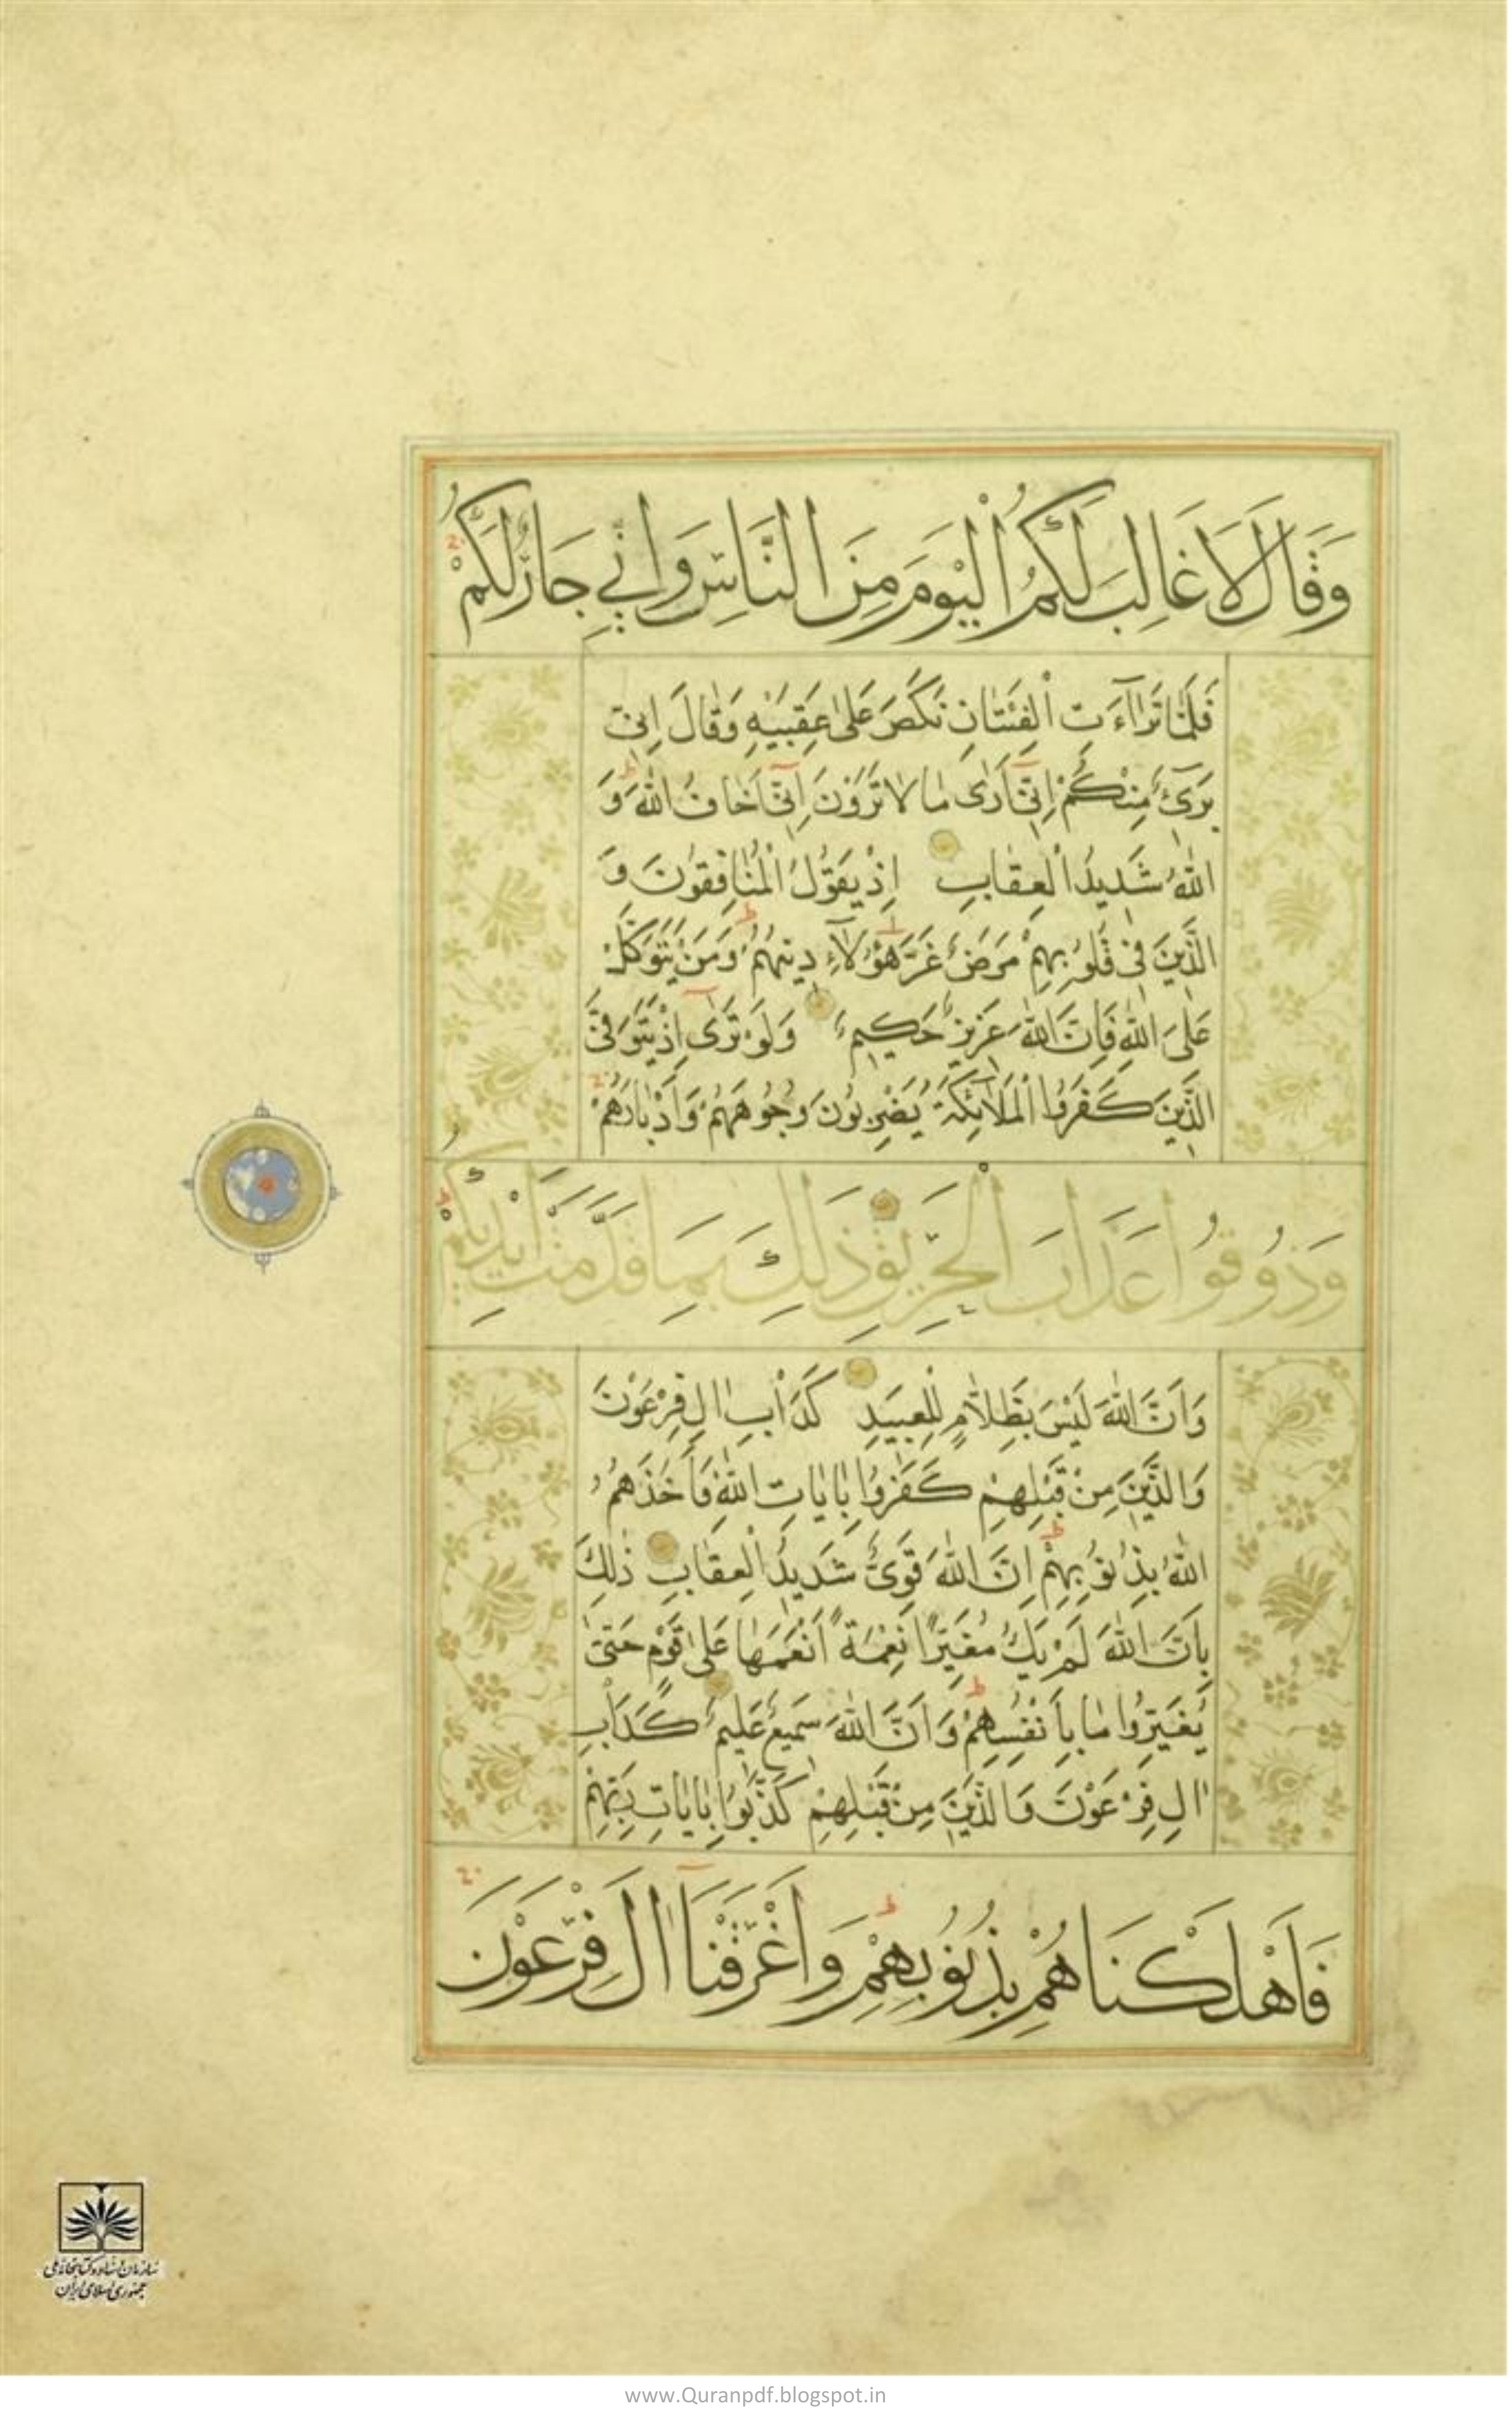 وَقَالَ لَا غَالِبَ لَكُمُ الْيَوْمَ مِنَ النَّاسِ وَإِنِّي جَارٌ لَكُمْ
فَلَمَّا تَرَاءَتِ الْفِئَتَانِ نَكَصَ عَلَى عَقِبَيْهِ وَقَالَ إِنِّي
بَرِيءٌ مِنْكُمْ إِنِّي أَرَى مَا لَا تَرَوْنَ إِنِّي أَخَافُ اللَّهَ وَ
اللَّهُ شَدِيدُ الْعِقَابِ إِذْ يَقُولُ الْمُنَافِقُونَ وَ
الَّذِينَ فِي قُلُوبِهِمْ مَرَضٌ غَرَّ هَؤُلَاءِ دِينُهُمْ وَمَنْ يَتَوَكَّلْ
عَلَى اللَّهِ فَإِنَّ اللَّهَ عَزِيزٌ حَكِيمٌ وَلَوْ تَرَى إِذْ يَتَوَفَّى
الَّذِينَ كَفَرُوا الْمَلَائِكَةُ يَضْرِبُونَ وُجُوهَهُمْ وَأَدْبَارَهُمْ
وَذُوقُوا عَذَابَ الْحَرِيقِ ذَلِكَ بِمَا قَدَّمَتْ أَيْدِيكُمْ
وَأَنَّ اللَّهَ لَيْسَ بِظَلَّامٍ لِلْعَبِيدِ كَدَأْبِ آلِ فِرْعَوْنَ
وَالَّذِينَ مِنْ قَبْلِهِمْ كَفَرُوا بِآيَاتِ اللَّهِ فَأَخَذَهُمُ
اللَّهُ بِذُنُوبِهِمْ إِنَّ اللَّهَ قَوِيٌّ شَدِيدُ الْعِقَابِ ذَلِكَ
بِأَنَّ اللَّهَ لَمْ يَكُ مُغَيِّرًا نِعْمَةً أَنْعَمَهَا عَلَى قَوْمٍ حَتَّى
يُغَيِّرُوا مَا بِأَنْفُسِهِمْ وَأَنَّ اللَّهَ سَمِيعٌ عَلِيمٌ كَدَأْبِ
آلِ فِرْعَوْنَ وَالَّذِينَ مِنْ قَبْلِهِمْ كَذَّبُوا بِآيَاتِ رَبِّهِمْ
فَأَهْلَكْنَاهُمْ بِذُنُوبِهِمْ وَأَغْرَقْنَا آلَ فِرْعَوْنَ
سازمان اسناد و کتابخانه ملی
جمهوری اسلامی ایران
www.Quranpdf.blogspot.in